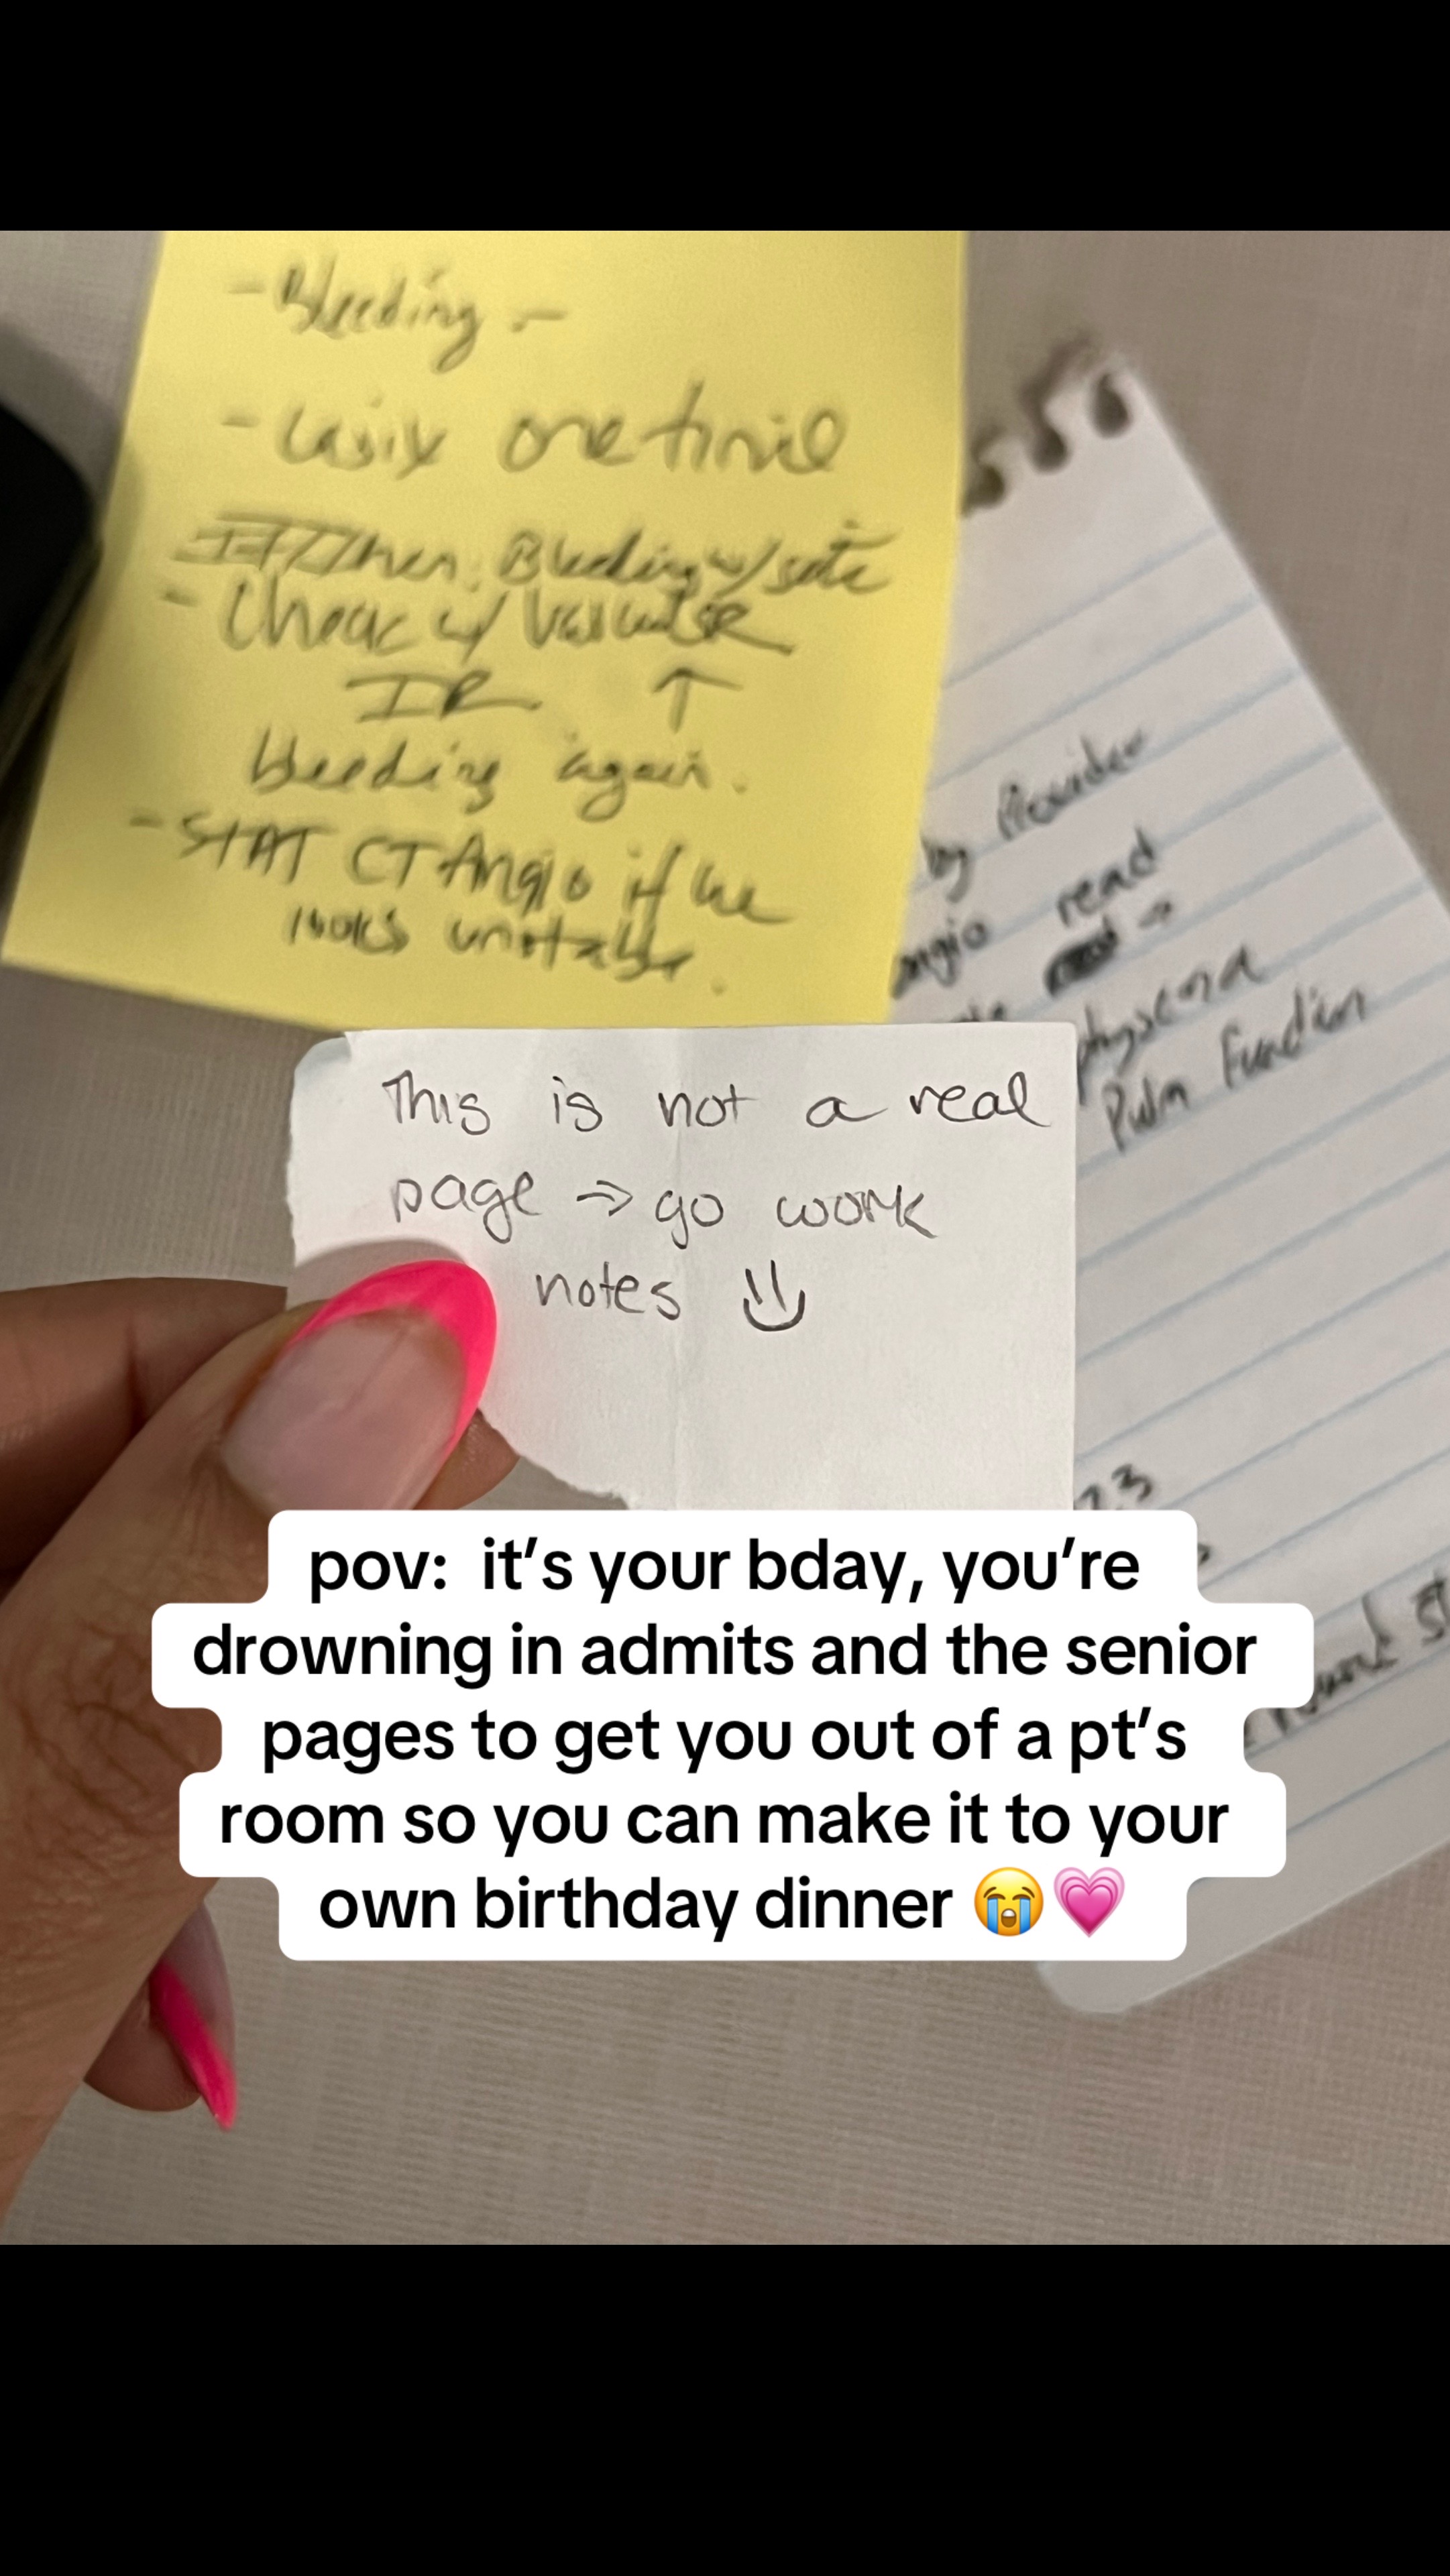 - Bleeding -
- Lasix one time
If/Then: Bleeding w/ site
- Check w/ Vascular
IR ↑
bleeding again.
- STAT CT Angio if he
looks unstable.
by Provider
angio read
Pulm Function
This is not a real
page ⇒ go work
notes
23
pov: it’s your bday, you’re
drowning in admits and the senior
pages to get you out of a pt’s
room so you can make it to your
own birthday dinner 😭💗